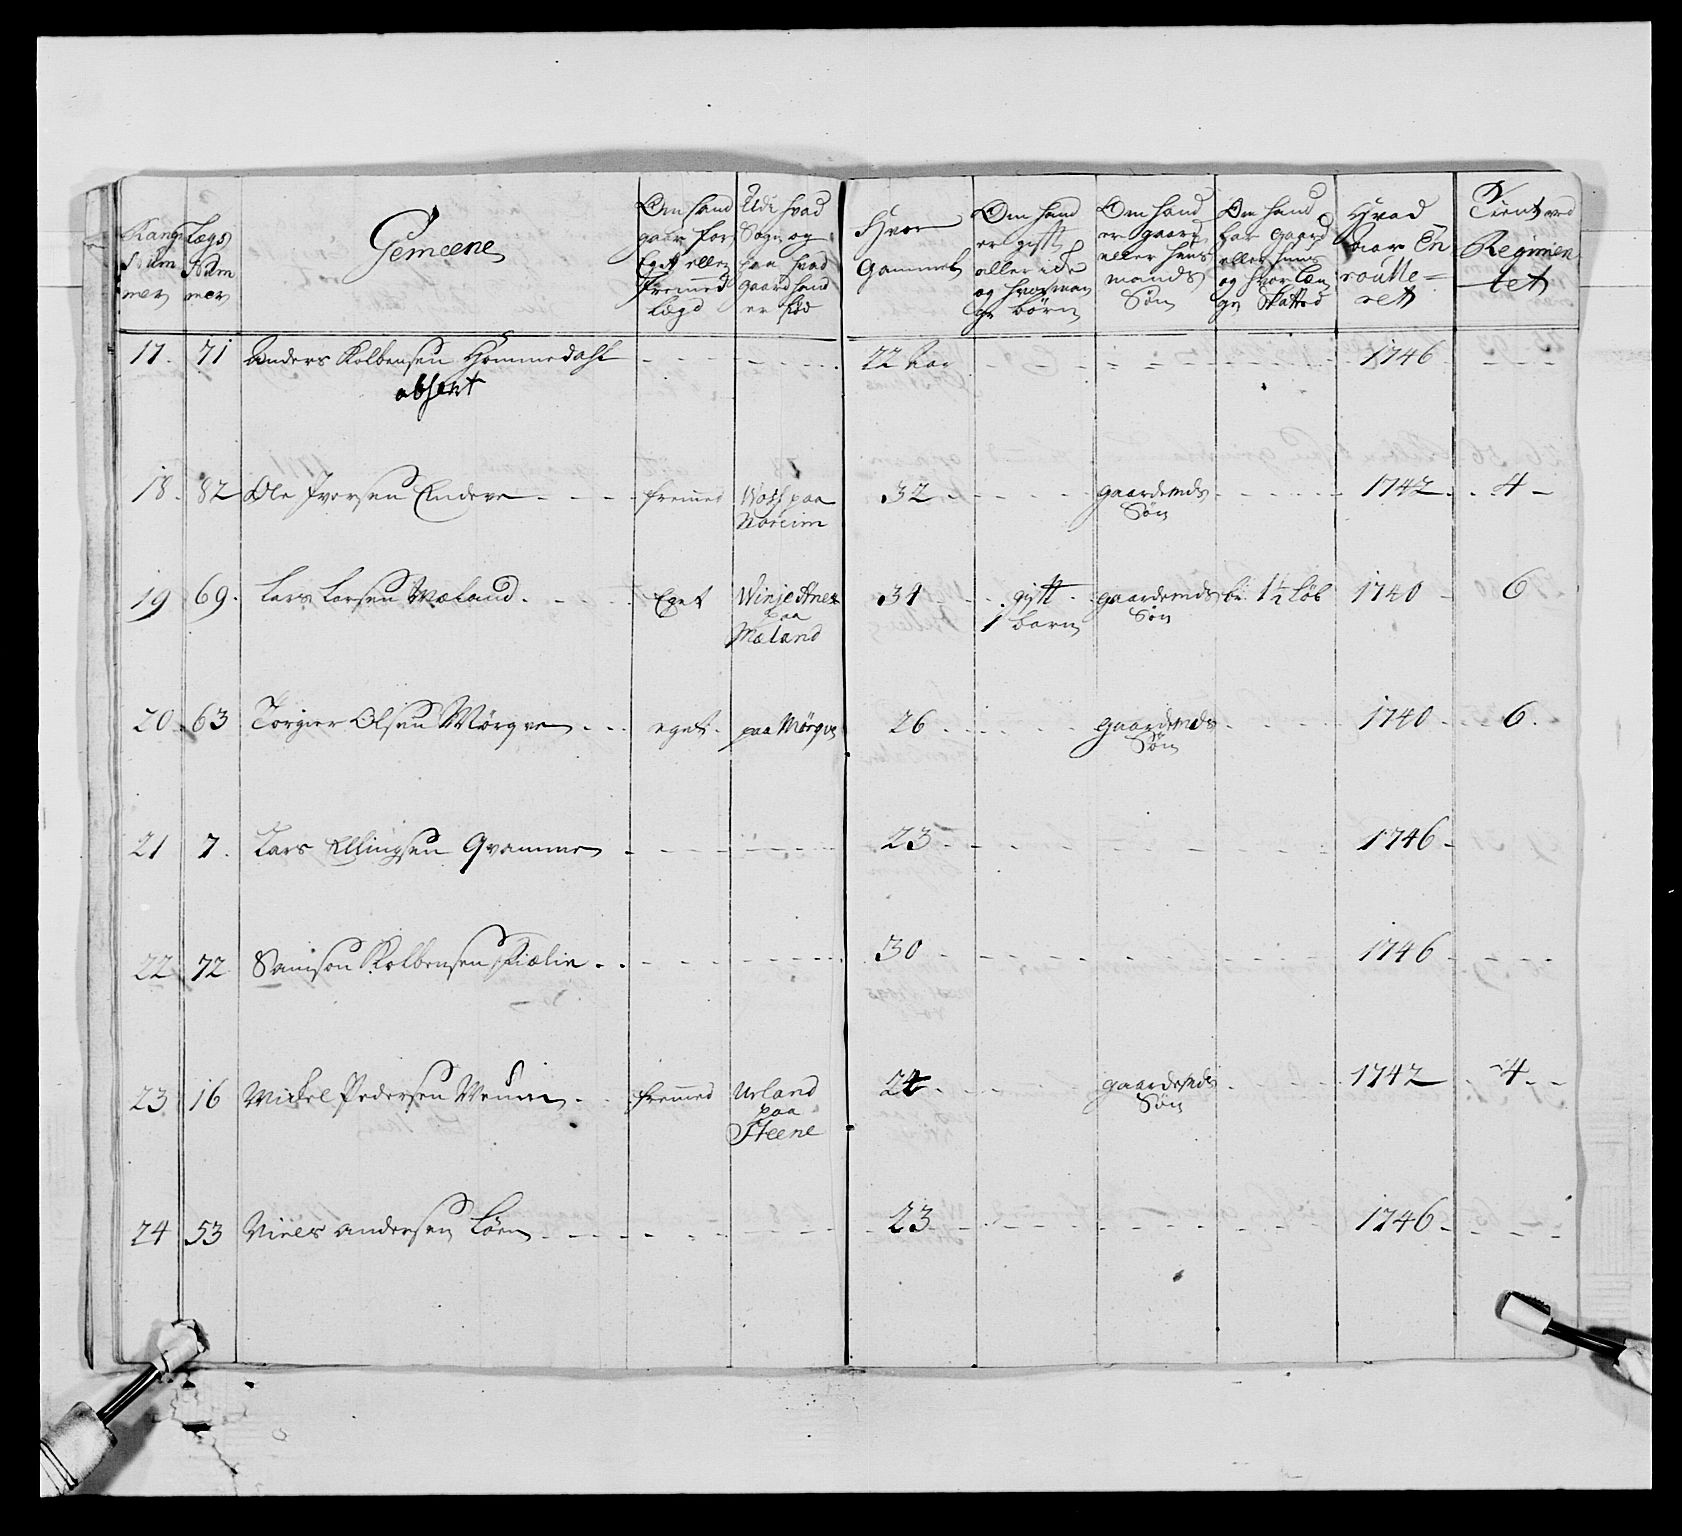 Rang Num mer | Lægs Num mer | Gemeene | Om hand gaar for Eget eller fremed Lægd | Udi hvad Sogn og paa hvad gaard hand er fød | Hvor Gammel | Om hand er gift eller ide og hvor man ge børn | Om hand er gaard eller huus mands Søn | Om hand har gaard eller huus og hvor Læn ge Skatted | Hvad Aar En roulle= ret | Tient ved Regimen tet
17. | 71 | Anders Kolbensen Hommedahl absent | 22 Aar | 1746
18. | 82 | Ole Iversen Endeve | fremed | Woss paa Noreim | 32 | gaardmds Søn | 1742 | 4
19 | 69. | Lars Larsen Mæland | Eget | Winje Anex paa Mæland | 34 | gift 1 barn | gaardmds Søn | br. 1½ Løb | 1740 | 6
20 | 63 | Torgier Olsen Mørqven | eget | paa Mørqve | 26 | gaardmds Søn | 1740 | 6.
21 | 7. | Lars Ellingsen Qvamme | 23 | 1746
22 | 72 | Samson Kolbensen Fiælie | 30 | 1746
23 | 16 | Mickel Pedersen | fremed | Urland paa Steene | 24 | gaardmds Søn | 1742 | 4
24 | 53 | Niels Andersen Løen | 23 | 1746